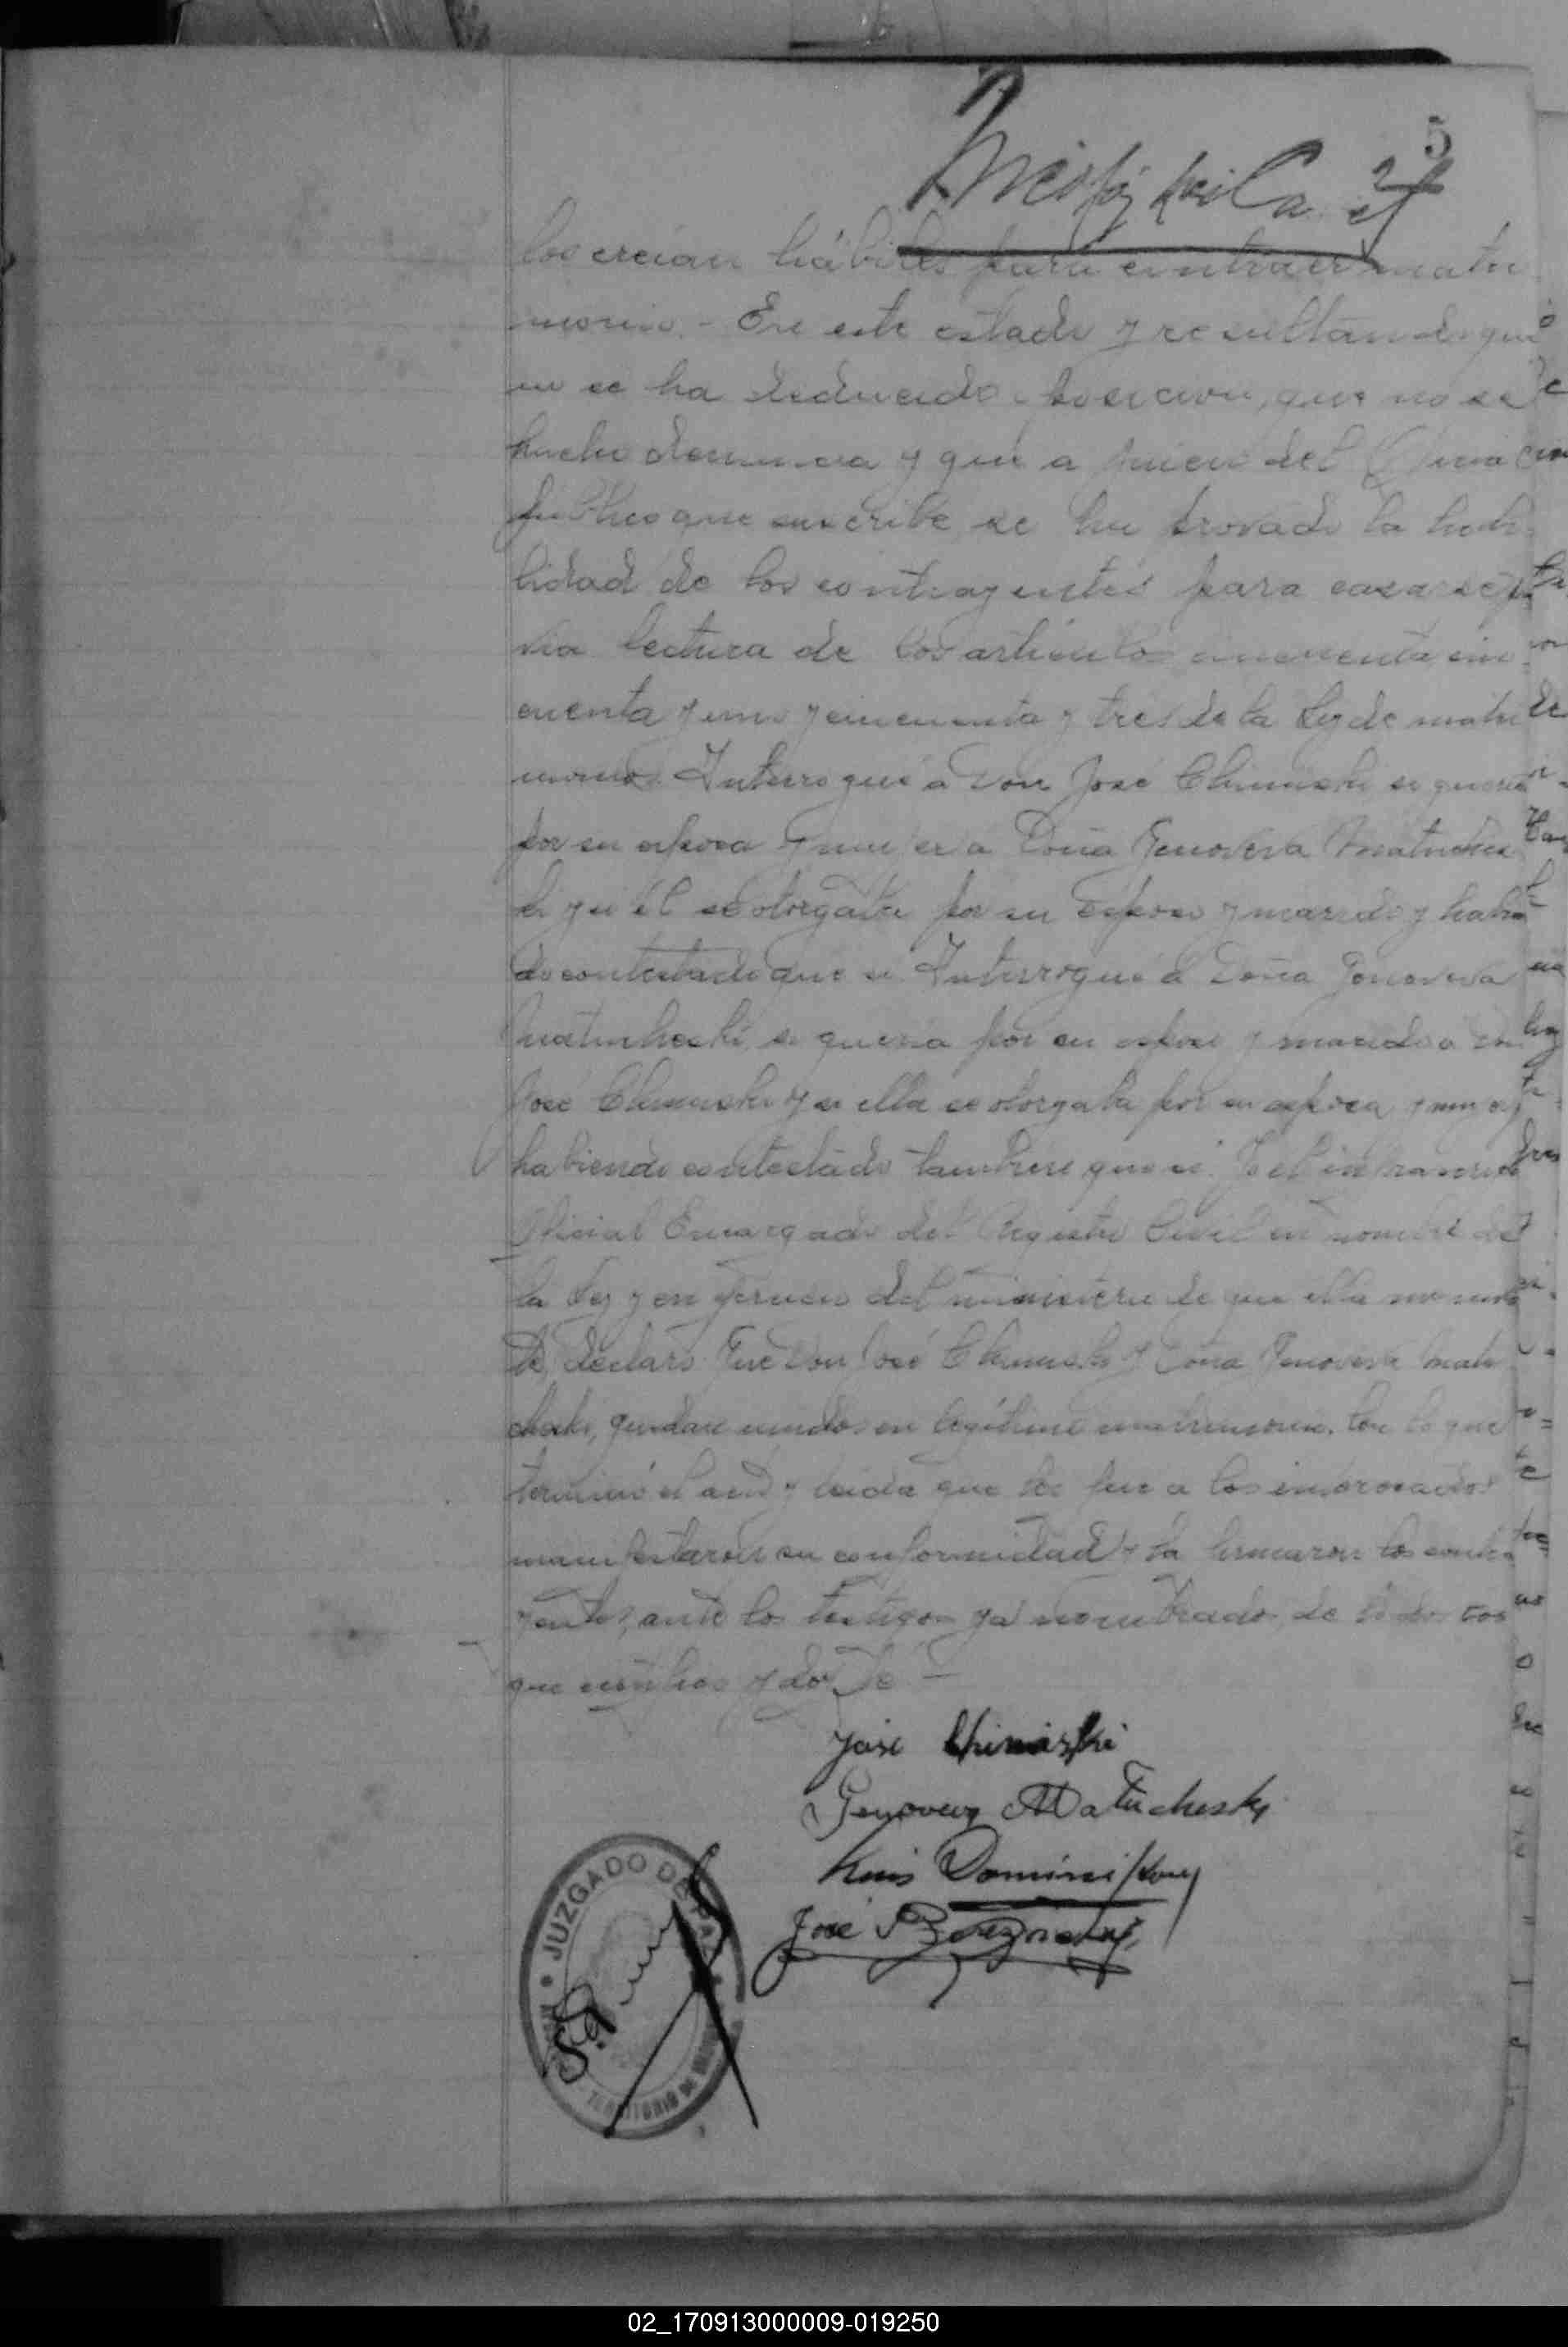 5
los creian hábiles para contraer matri
monio. - En este estado y resultando que
no se ha deducido que no se
hecho denuncia y que a juicio del
público que suscribe, se ha provado la habi
lidad de los contrayentes para casarse, pre
via lectura de los artículos cincuenta, cin
cuenta y uno y cincuenta y tres de la Ley de matri
monio. Interrogué a Don José Chimiski, si queria
por su esposa y mujer a Doña Genoveva Matuches
ki y si él se otorgaba por su esposo y marido y habien
do contestado que si. Interrogué a Doña Genoveva
Matucheski, si queria por su esposo y marido a Don
José Chimiski y si ella se otorgaba por su esposa y mujer y
habiendo contestado tambien que si. Yo el infrascrito
Oficial Encargado del Registro Civil en nombre de
la Ley y en del ministerio de que ella me
declaro: Que Don José Chimiski y Doña Genoveva Matu
cheski, quedan unidos en legítimo matrimonio. Con lo que
terminó el acta y leida que les fue a los interesados
manifestaron su conformidad y la firmaron los contra
yentes, ante los testigos ya nombrados, de todos los
que certifico y doy fé -
José Chimiski
Genoveva Matucheski
Luis
José
JUZGADO DE PAZ
TERRITORIO DE
02_170913000009-019250